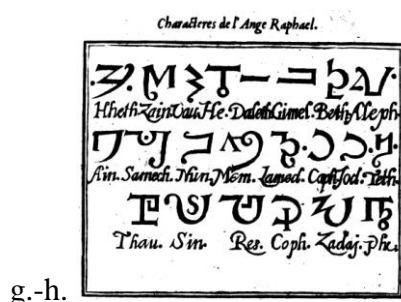 Characteres de l'Ange Raphael.
Hheth. Zain. Vau. He. Daleth. Gimel. Beth. Aleph.
Ain. Samech. Nun. Mem. Lamed. Caph. Jod. Teth.
Thau. Sin. Res. Coph. Zadaj. Phe.
g.-h.